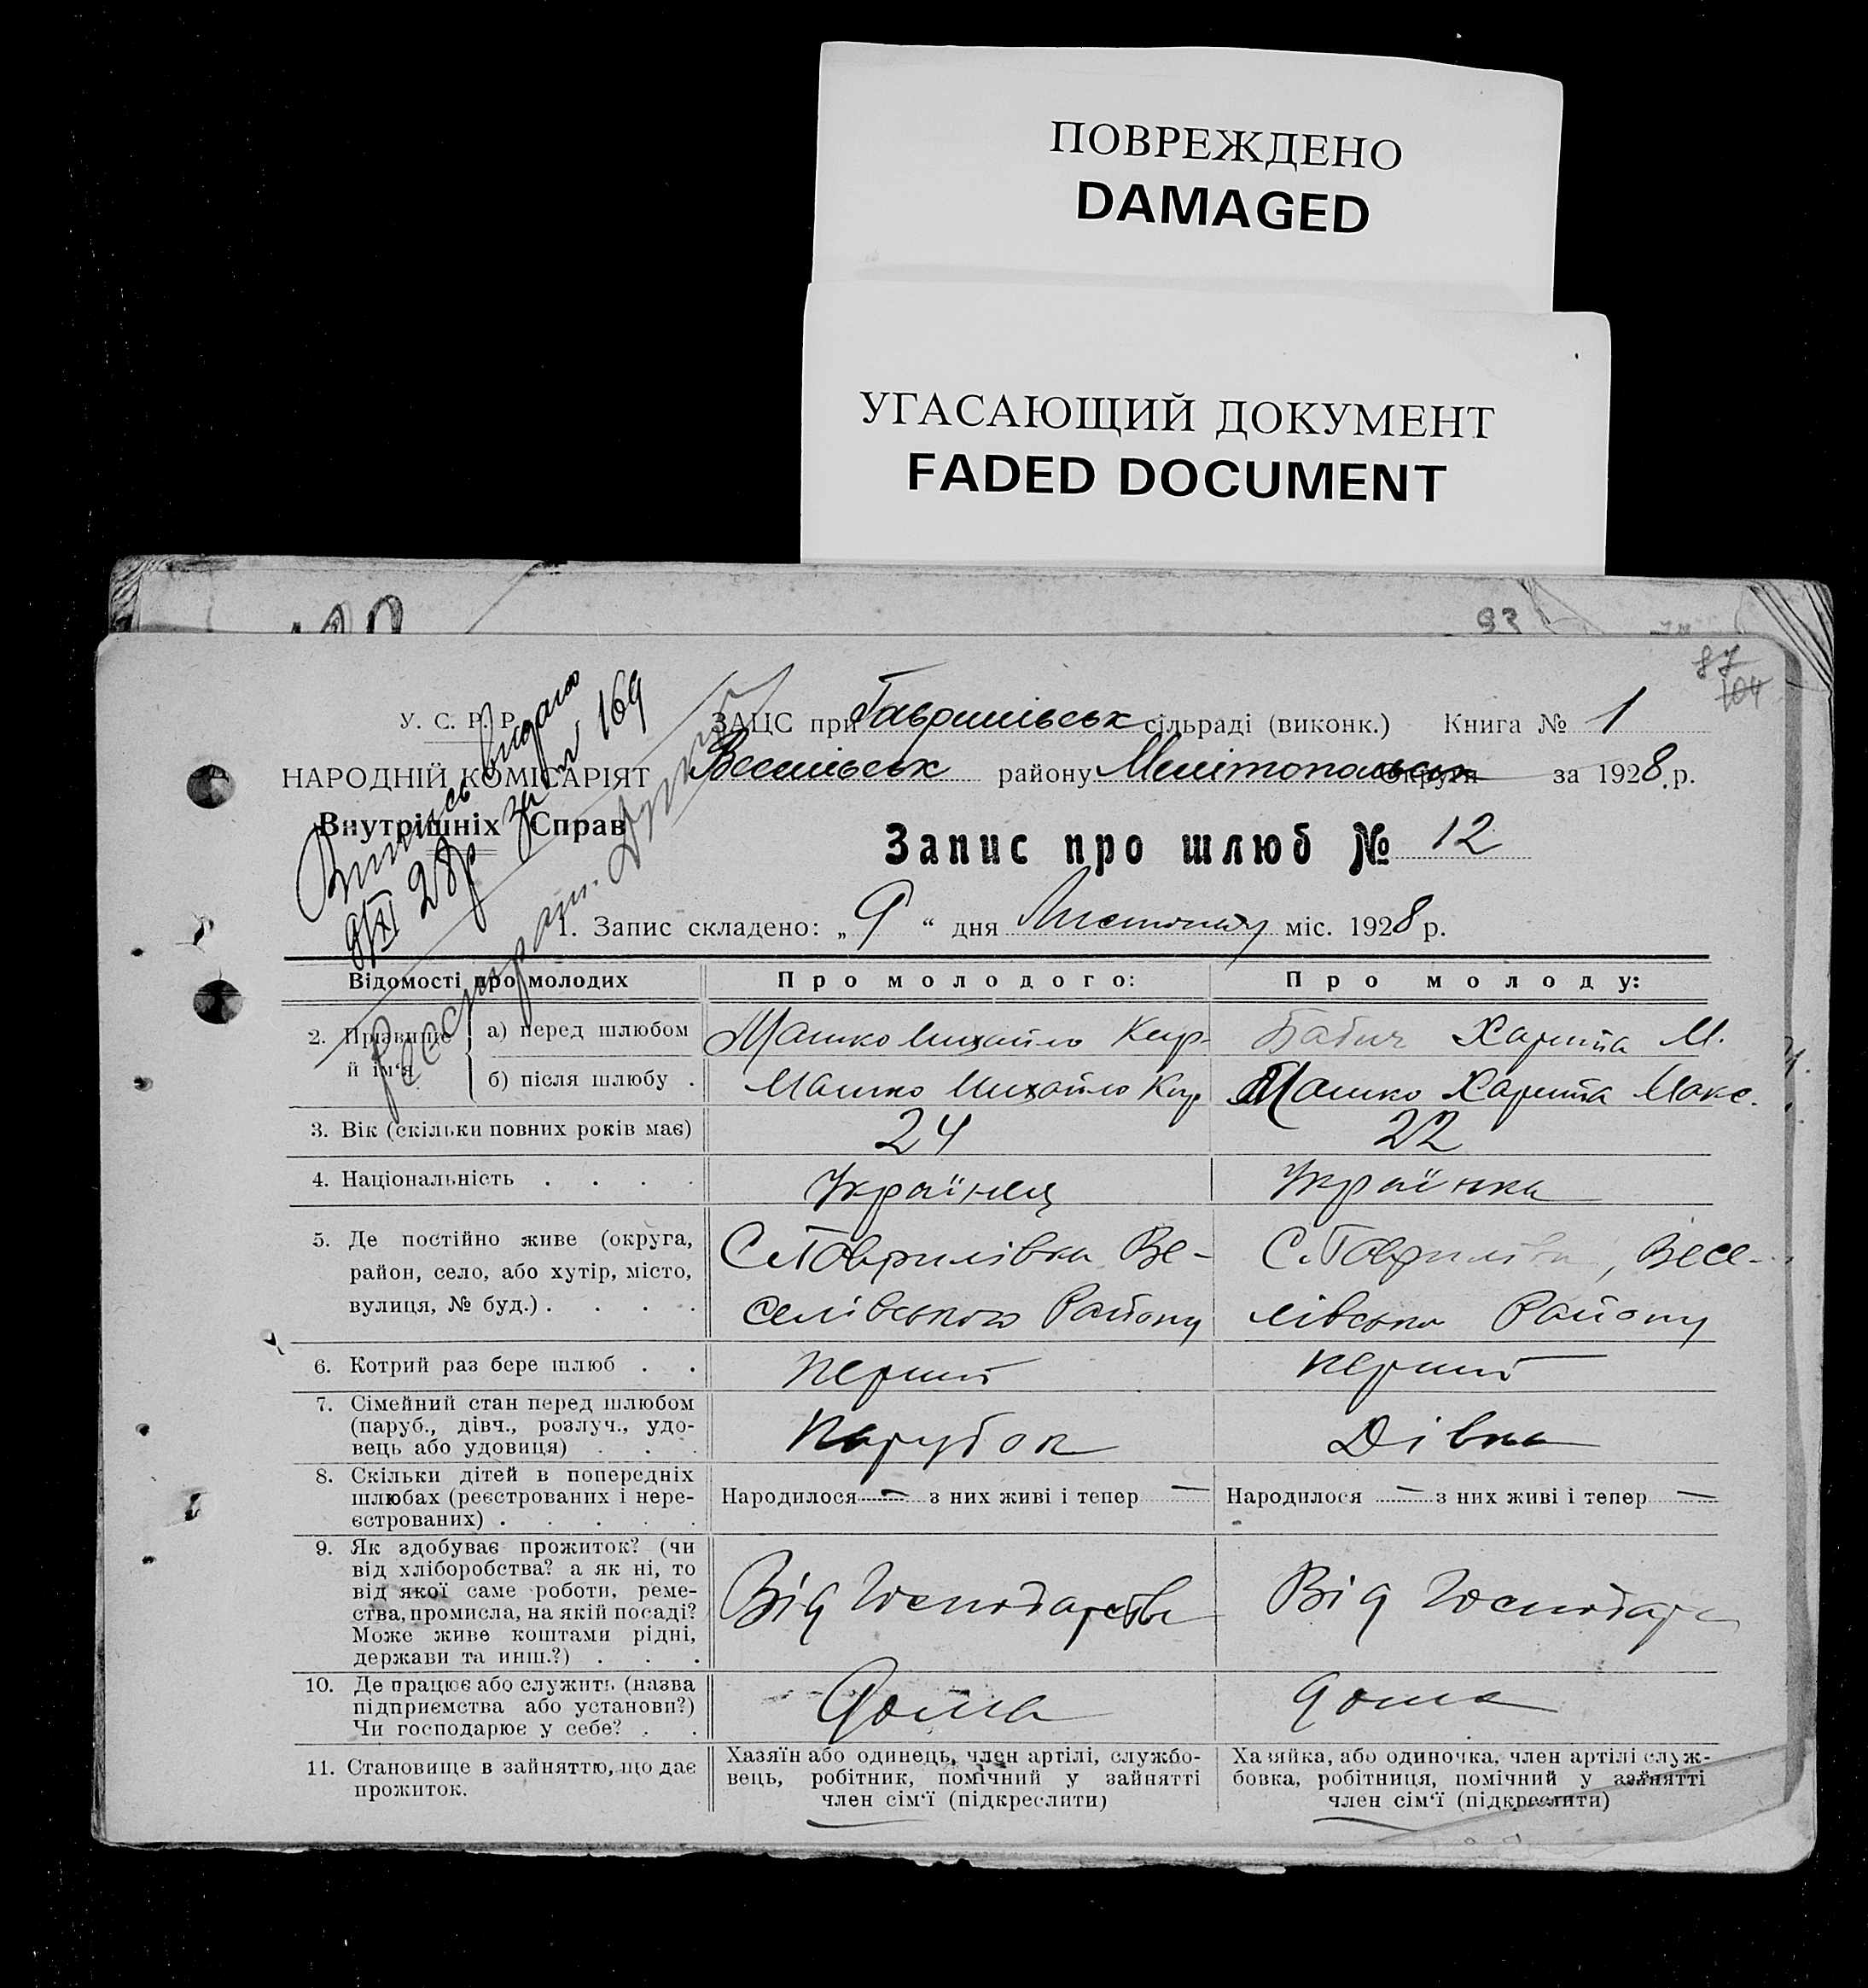 ПОВРЕЖДЕНО
DAMAGED
УГАСАЮЩИЙ ДОКУМЕНТ
FADED DOCUMENT
93
87
104
У. С. Р. Р.
НАРОДНІЙ КОМІСАРІЯТ
Внутрішніх Справ
Випись видано
9/XI 28р за № 169
ЗАЦС при Гаврилівськ сільраді (виконк.) Книга № 1
Веселівськ району Мелітопольськ округи за 1928 р.
Запис про шлюб № 12
1. Запис складено: „9“ дня Листопаду міс. 1928 р.
Відомості про молодих Про молодого: Про молоду:
2. Прізвище й ім'я
а) перед шлюбом Машко Михайло Кир. Бабич Харитта М.
б) після шлюбу . Машко Михайло Кир Машко Харитта Макс.
3. Вік (скільки повних років має) 24 22
4. Національність . . . . Українец Українка
5. Де постійно живе (округа,
район, село, або хутір, місто,
вулиця, № буд.) . . . .
С. Гаврилівка Ве-
селівського Району
С. Гаврилівка, Весе-
лівська Району
6. Котрий раз бере шлюб . . перший перший
7. Сімейний стан перед шлюбом
(паруб., дівч., розлуч., удо-
вець або удовиця) . . .
Парубок Дівка
8. Скільки дітей в попередніх
шлюбах (реєстрованих і нере-
єстрованих) . . . . .
Народилося — з них живі і тепер — Народилося — з них живі і тепер —
9. Як здобуває прожиток? (чи
від хліборобства? а як ні, то
від якої саме роботи, реме-
ства, промисла, на якій посаді?
Може живе коштами рідні,
держави та инш.?) . . .
Від Господарства Від Господар
10. Де працює або служить (назва
підприємства або установи?)
Чи господарює у себе? . .
Дома дома
11. Становище в зайняттю, що дає
прожиток.
Хазяїн або одинець, член артілі, службо-
вець, робітник, помічний у зайнятті
член сім'ї (підкреслити)
Хазяйка, або одиночка, член артілі служ-
бовка, робітниця, помічний у зайнятті
член сім'ї (підкреслити)